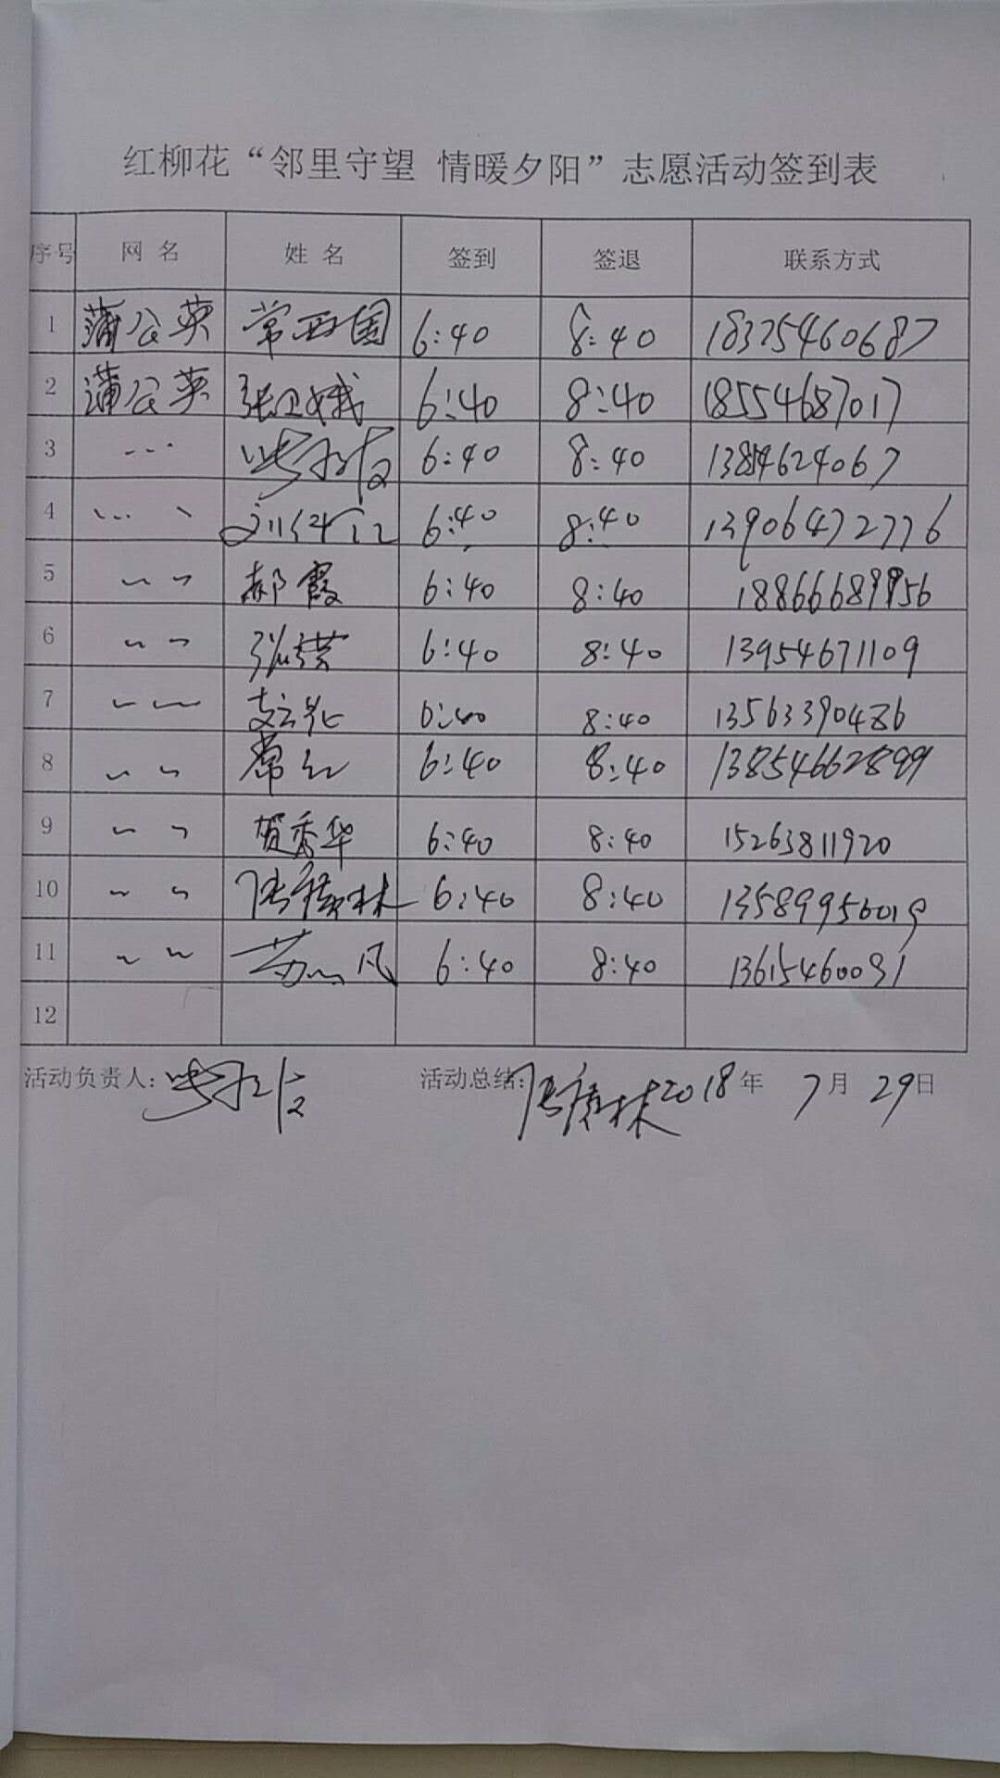 红柳花“邻里守望 情暖夕阳”志愿活动签到表
序号 网名 姓名 签到 签退 联系方式
1 蒲公英 常西国 6:40 8:40 18375460687
2 蒲公英 张卫娥 6:40 8:40 18554687017
3 6:40 8:40
4 6:40 8:40 13906472776
5 郝霞 6:40 8:40
6 6:40 8:40 13954671109
7 6:40 8:40 13563390486
8 常红 6:40 8:40 13854662899
9 贺秀华 6:40 8:40 15263811920
10 6:40 8:40 13589956019
11 6:40 8:40 13615460091
12
活动负责人: 活动总结: 2018年 7月 29日